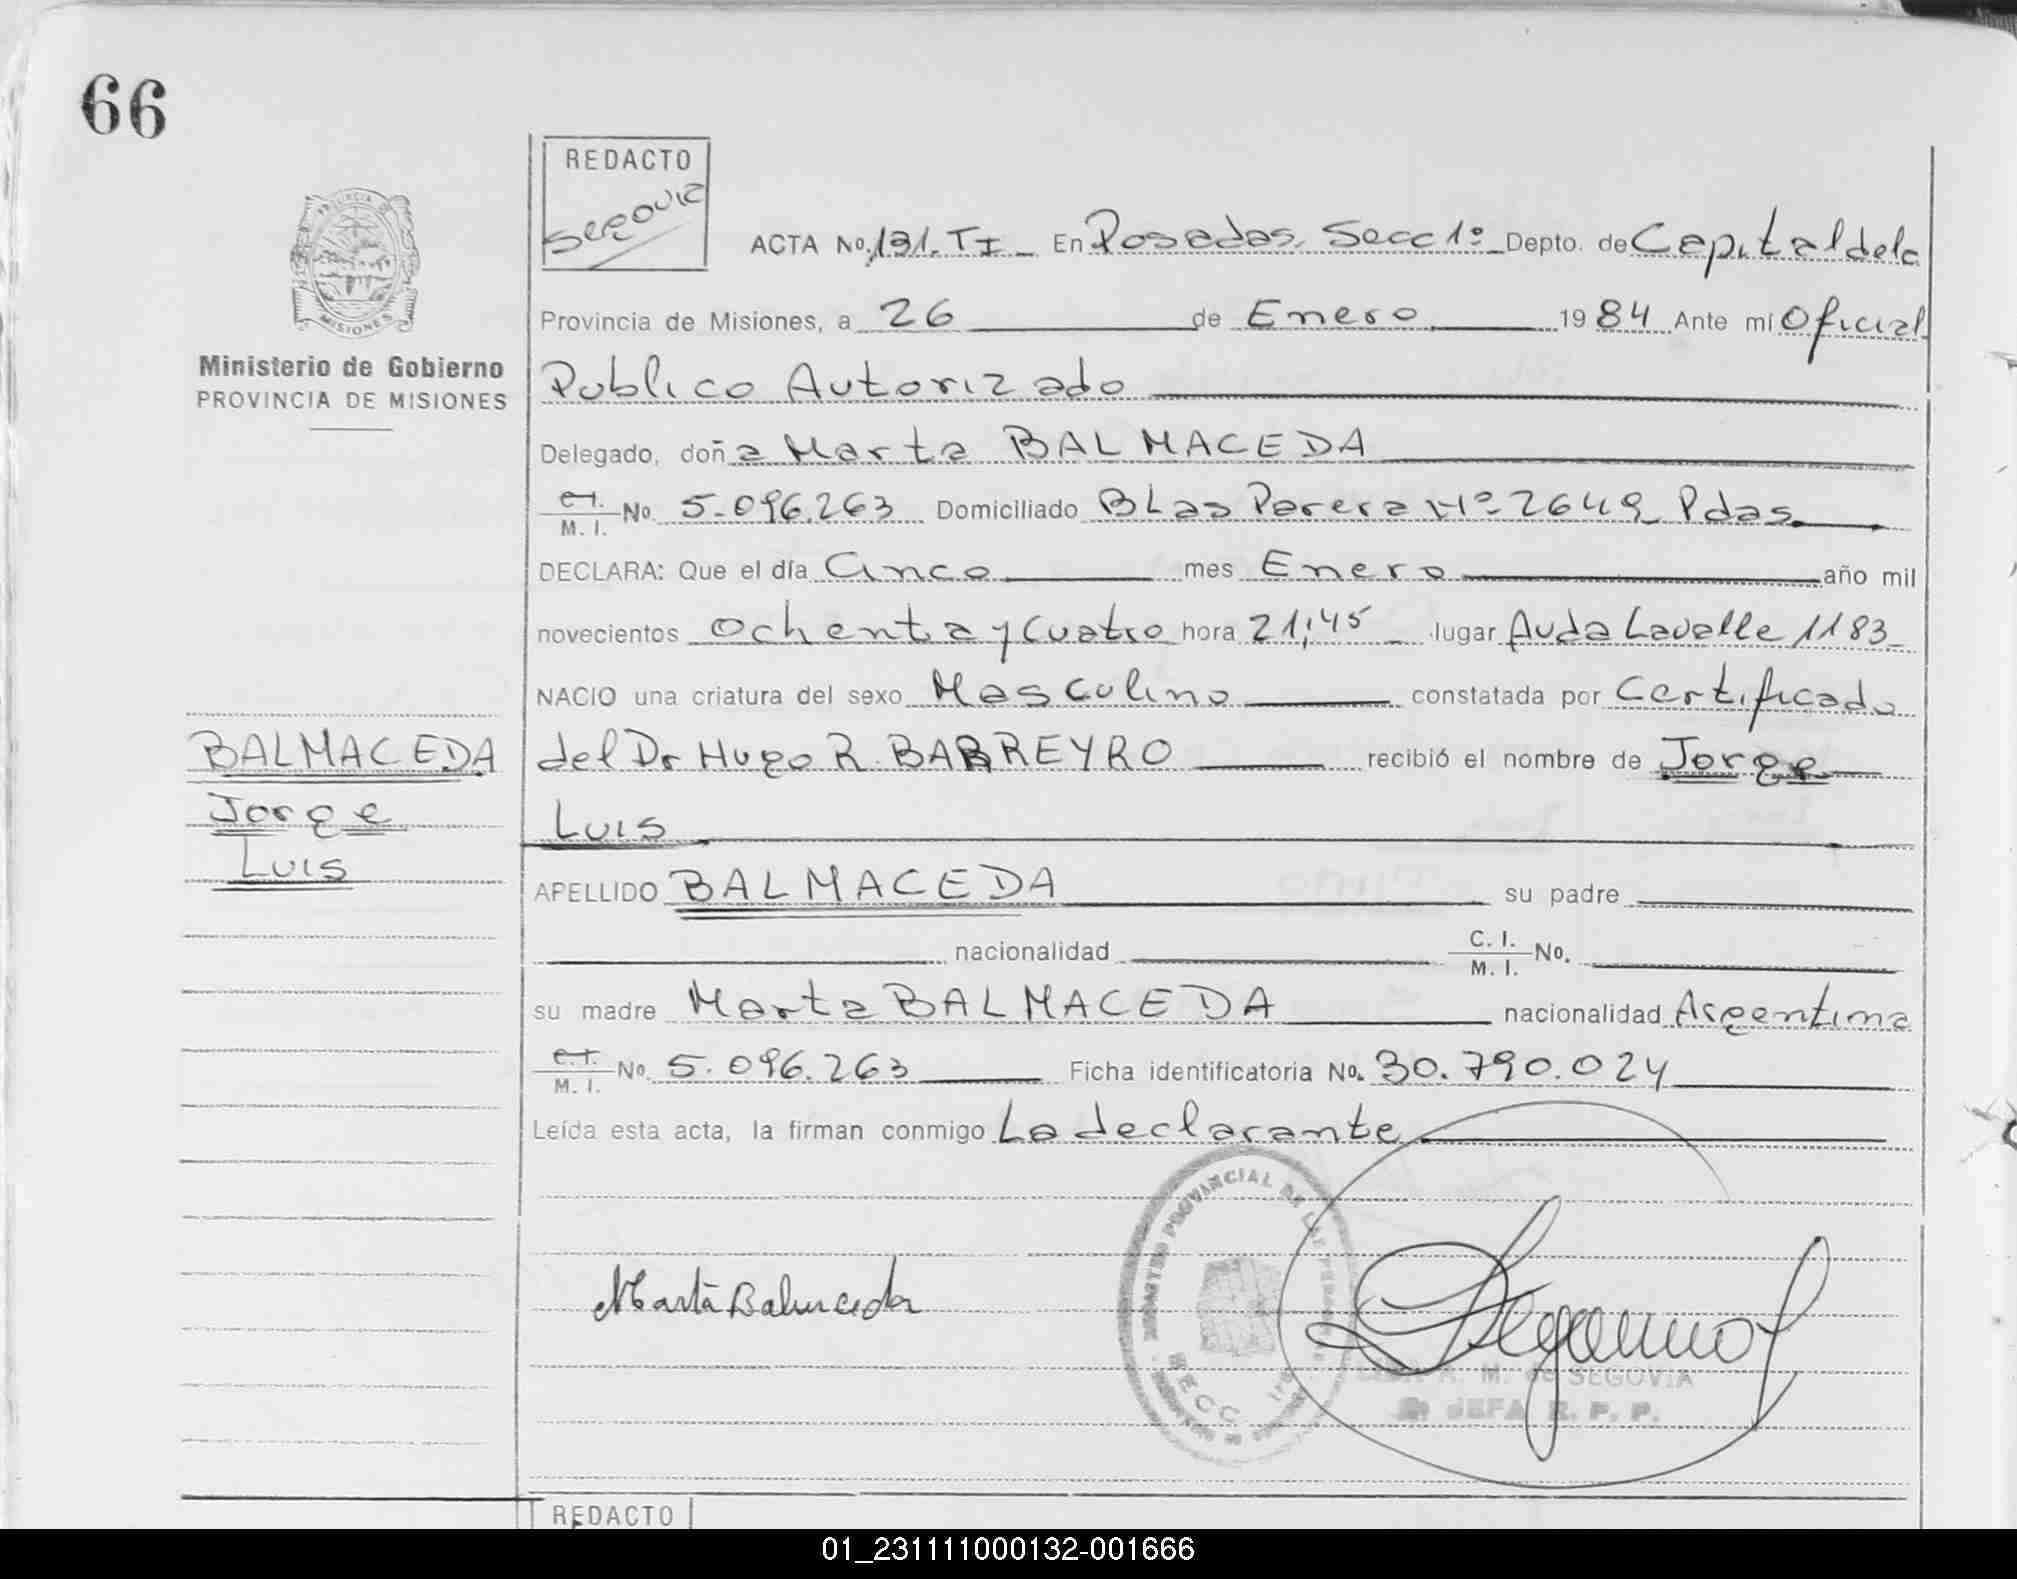 66
REDACTO
SEGOVIA
PROVINCIA DE
MISIONES
Ministerio de Gobierno
PROVINCIA DE MISIONES
ACTA No. 191. TI En Posadas. Secc 1º Depto. de Capital de la
Provincia de Misiones, a 26 de Enero 1984 Ante mí Oficial
Publico Autorizado
Delegado, doña Marta BALMACEDA
C.I. M. I. No. 5.096.263 Domiciliado BLas Parera Nº 2649 Pdas.
DECLARA: Que el día Cinco mes Enero año mil
novecientos Ochenta y Cuatro hora 21,45 lugar Avda Lavalle 1183
NACIO una criatura del sexo Masculino constatada por Certificado
del Dr Hugo R. BARREYRO recibió el nombre de Jorge
Luis
BALMACEDA
Jorge
Luis
APELLIDO BALMACEDA su padre
nacionalidad C. I. M. I. No.
su madre Marta BALMACEDA nacionalidad Argentina
C.I. M. I. No. 5.096.263 Ficha identificatoria No. 30.790.024
Leída esta acta, la firman conmigo La declarante
Marta Balmaceda
REGISTRO PROVINCIAL DE LAS PERSONAS
SECC
A. M. de SEGOVIA
JEFA R. P. P.
REDACTO
01_231111000132-001666